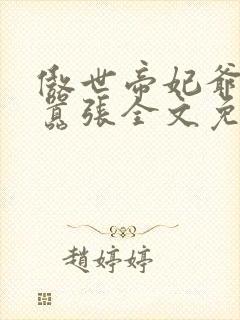 傲世帝妃爷
嚣張全文免
趙婷婷